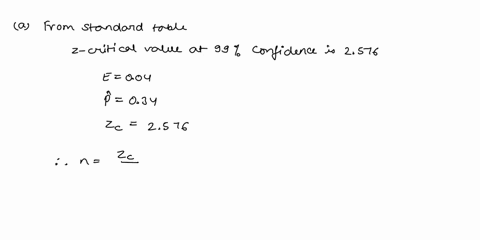 (a) From standard table
z-critical value at 99% confidence is 2.576
E = 0.04
p̂ = 0.34
Zc = 2.576
∴ n = Zc